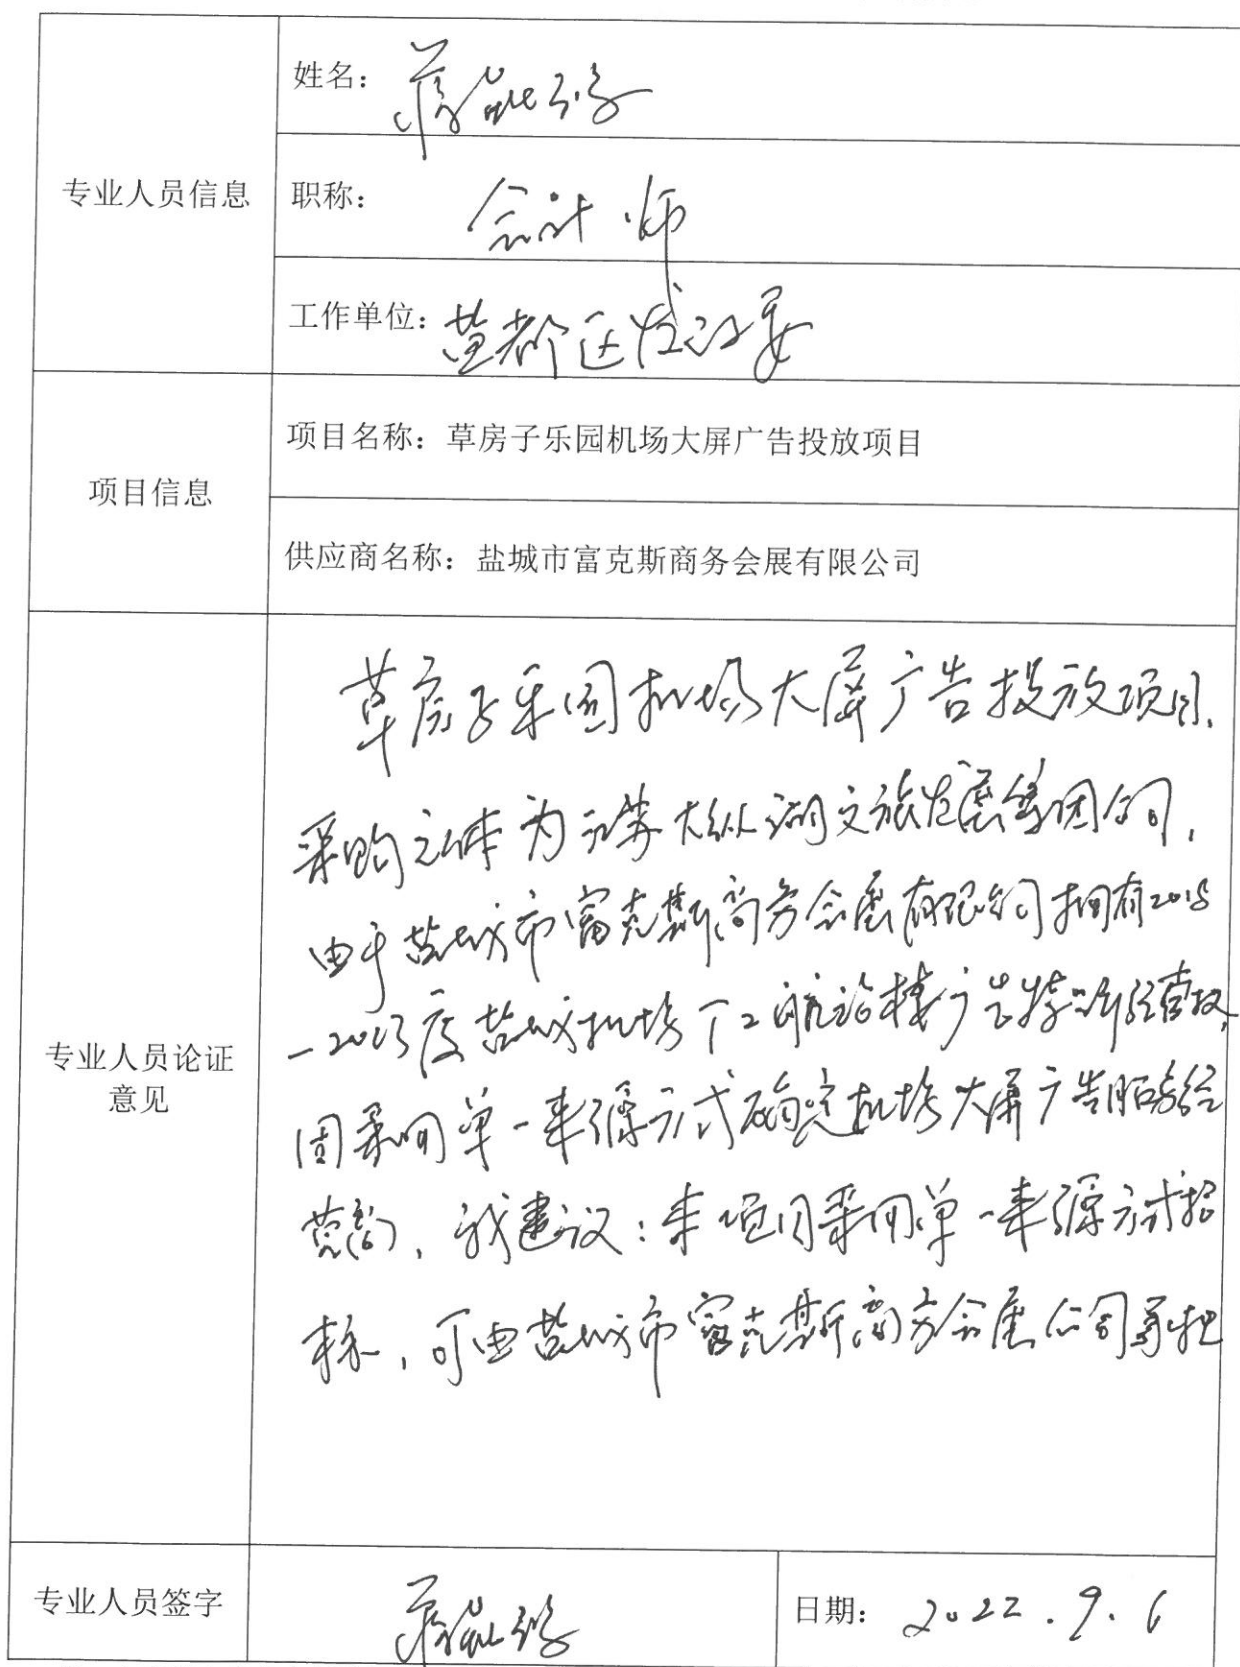 姓名：蒋
专业人员信息
职称：会计师
工作单位：盐都区发改委
项目信息
项目名称：草房子乐园机场大屏广告投放项目
供应商名称：盐城市富克斯商务会展有限公司
专业人员论证
意见
草房子乐园机场大屏广告投放项目，
采购主体为江苏大纵湖文旅发展集团公司，
由于盐城市富克斯商务会展有限公司拥有2018
-2023度盐城机场T2航站楼广告特许经营权，
因采用单一来源方式确定机场大屏广告服务经
营商，我建议：本项目采用单一来源方式招
标，可由盐城市富克斯商务会展公司承担
专业人员签字
蒋
日期：2022.9.6